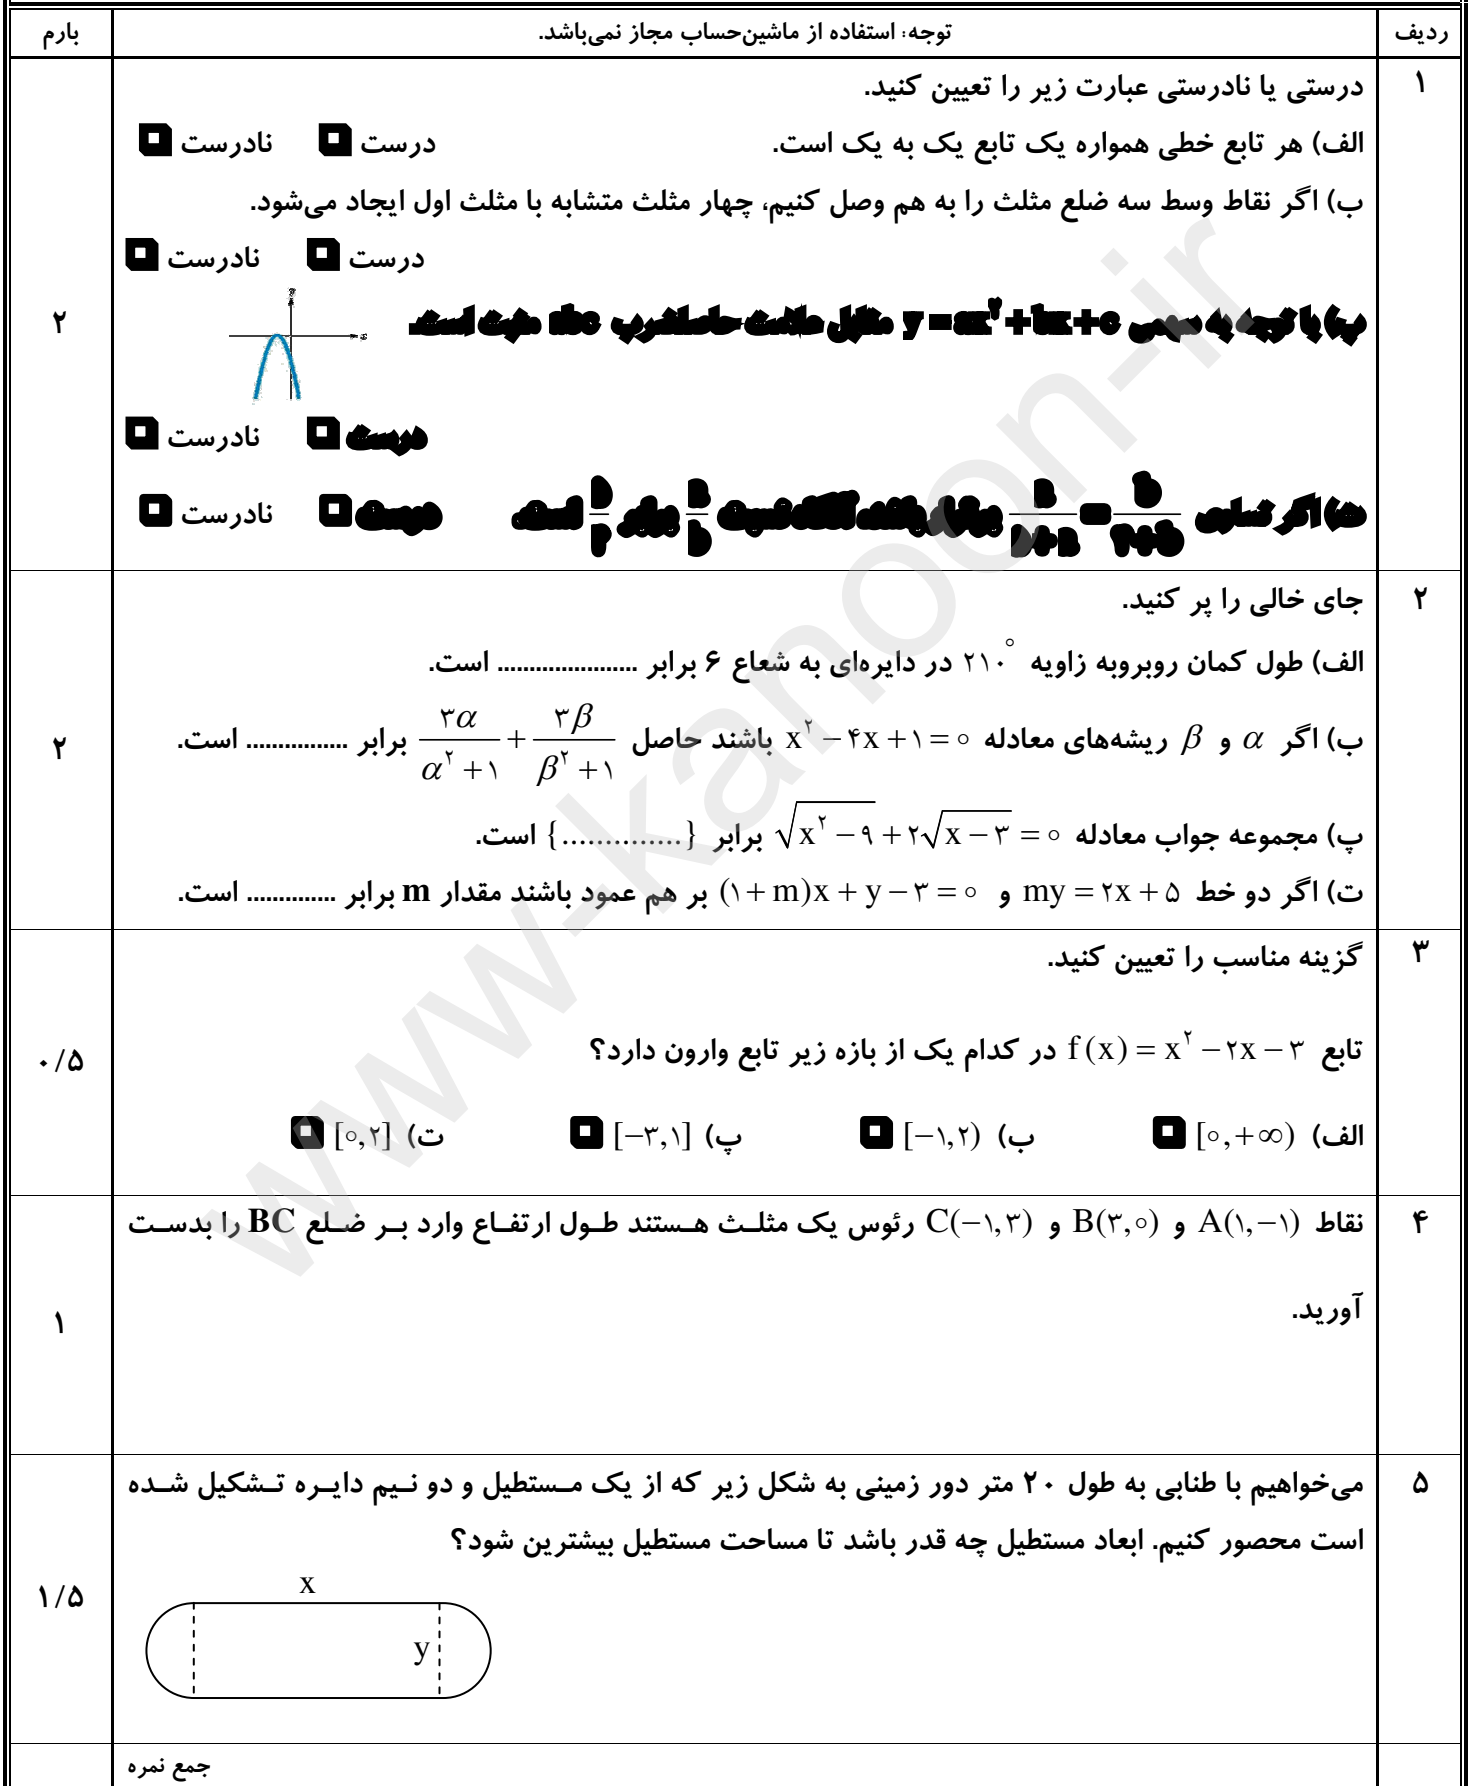 ردیف توجه: استفاده از ماشین‌حساب مجاز نمی‌باشد. بارم
۱ درستی یا نادرستی عبارت زیر را تعیین کنید.
الف) هر تابع خطی همواره یک تابع یک به یک است. درست نادرست
ب) اگر نقاط وسط سه ضلع مثلث را به هم وصل کنیم، چهار مثلث متشابه با مثلث اول ایجاد می‌شود.
درست نادرست
۲
پ) با توجه به سهمی y = ax² + bx + c مقابل علامت حاصلضرب abc مثبت است.
درست نادرست
ت) اگر تساوی برقرار باشد آنگاه نسبت برابر است. درست نادرست
۲ جای خالی را پر کنید.
الف) طول کمان روبروبه زاویه ۲۱۰° در دایره‌ای به شعاع ۶ برابر ...................... است.
ب) اگر α و β ریشه‌های معادله x² − ۴x + ۱ = ۰ باشند حاصل ۳α/(α² + ۱) + ۳β/(β² + ۱) برابر ................ است.
۲
پ) مجموعه جواب معادله √(x² − ۹) + ۲√(x − ۳) = ۰ برابر {..............} است.
ت) اگر دو خط my = ۲x + ۵ و (۱ + m)x + y − ۳ = ۰ بر هم عمود باشند مقدار m برابر .............. است.
۳ گزینه مناسب را تعیین کنید.
تابع f(x) = x² − ۲x − ۳ در کدام یک از بازه زیر تابع وارون دارد؟
۰/۵
الف) [۰,+∞) ب) [−۱,۲) پ) [−۳,۱] ت) [۰,۲]
۴ نقاط A(۱,−۱) و B(۳,۰) و C(−۱,۳) رئوس یک مثلث هستند طول ارتفاع وارد بر ضلع BC را بدست
آورید.
۱
۵ می‌خواهیم با طنابی به طول ۲۰ متر دور زمینی به شکل زیر که از یک مستطیل و دو نیم دایره تشکیل شده
است محصور کنیم. ابعاد مستطیل چه قدر باشد تا مساحت مستطیل بیشترین شود؟
x
۱/۵
y
جمع نمره
www-kanoon-ir